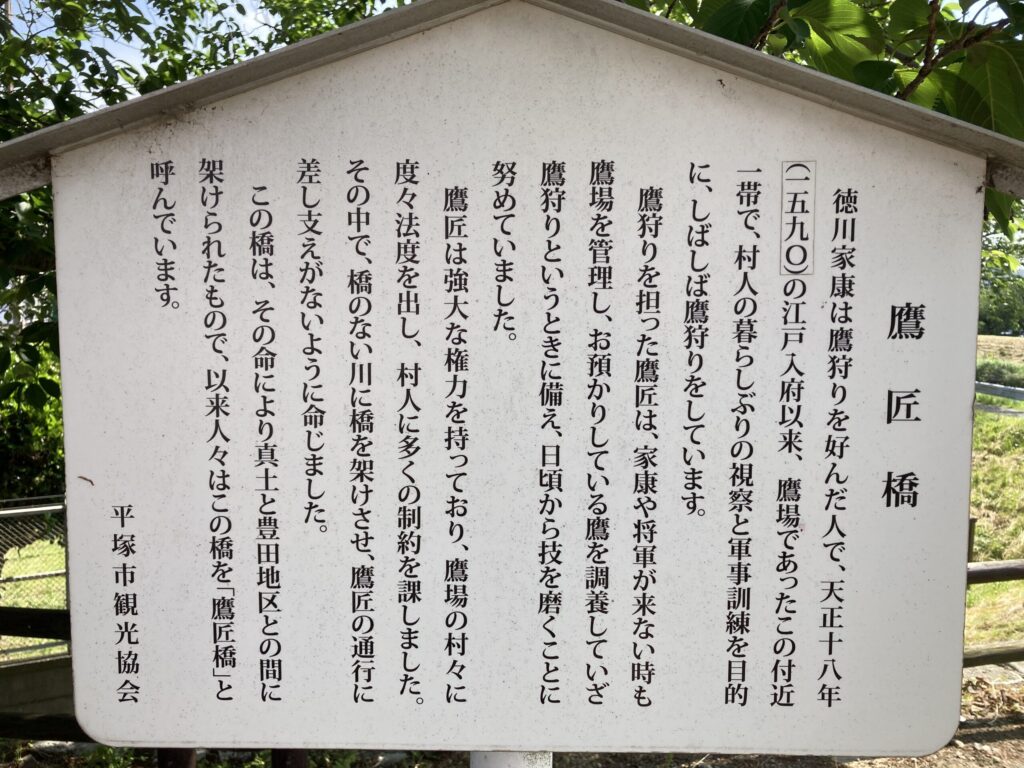 鷹匠橋
徳川家康は鷹狩りを好んだ人で、天正十八年
(一五九〇)の江戸入府以来、鷹場であったこの付近
一帯で、村人の暮らしぶりの視察と軍事訓練を目的
に、しばしば鷹狩りをしています。
鷹狩りを担った鷹匠は、家康や将軍が来ない時も
鷹場を管理し、お預かりしている鷹を調養していざ
鷹狩りというときに備え、日頃から技を磨くことに
努めていました。
鷹匠は強大な権力を持っており、鷹場の村々に
度々法度を出し、村人に多くの制約を課しました。
その中で、橋のない川に橋を架けさせ、鷹匠の通行に
差し支えがないように命じました。
この橋は、その命により真土と豊田地区との間に
架けられたもので、以来人々はこの橋を「鷹匠橋」と
呼んでいます。
平塚市観光協会